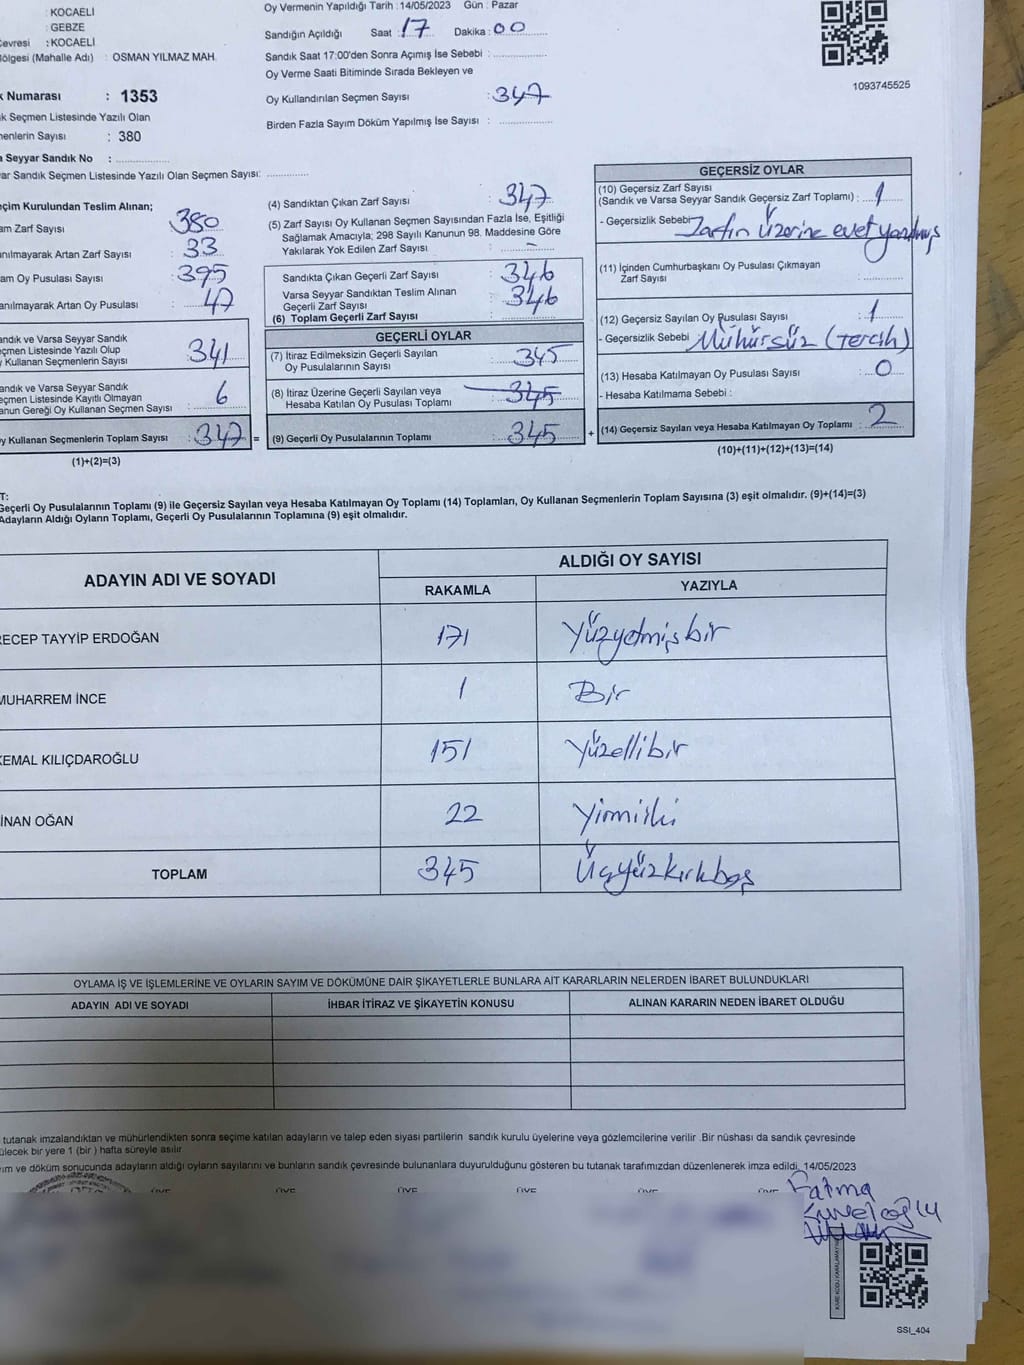 : KOCAELİ
: GEBZE
Çevresi : KOCAELİ
Bölgesi (Mahalle Adı) : OSMAN YILMAZ MAH.
k Numarası : 1353
k Seçmen Listesinde Yazılı Olan
menlerin Sayısı : 380
a Seyyar Sandık No :
ar Sandık Seçmen Listesinde Yazılı Olan Seçmen Sayısı:
Oy Vermenin Yapıldığı Tarih :14/05/2023 Gün : Pazar
Sandığın Açıldığı Saat : 17 Dakika : 00
Sandık Saat 17:00'den Sonra Açımış İse Sebebi :
Oy Verme Saati Bitiminde Sırada Bekleyen ve
Oy Kullandırılan Seçmen Sayısı : 347
Birden Fazla Sayım Döküm Yapılmış İse Sayısı :
1093745525
eçim Kurulundan Teslim Alınan;
am Zarf Sayısı : 380
anılmayarak Artan Zarf Sayısı : 33
am Oy Pusulası Sayısı : 395
anılmayarak Artan Oy Pusulası : 47
andık ve Varsa Seyyar Sandık
eçmen Listesinde Yazılı Olup
y Kullanan Seçmenlerin Sayısı : 341
andık ve Varsa Seyyar Sandık
eçmen Listesinde Kayıtlı Olmayan
anun Gereği Oy Kullanan Seçmen Sayısı : 6
y Kullanan Seçmenlerin Toplam Sayısı : 347 =
(1)+(2)=(3)
(4) Sandıktan Çıkan Zarf Sayısı : 347
(5) Zarf Sayısı Oy Kullanan Seçmen Sayısından Fazla İse, Eşitliği
Sağlamak Amacıyla; 298 Sayılı Kanunun 98. Maddesine Göre
Yakılarak Yok Edilen Zarf Sayısı : -
Sandıkta Çıkan Geçerli Zarf Sayısı : 346
Varsa Seyyar Sandıktan Teslim Alınan
Geçerli Zarf Sayısı : 346
(6) Toplam Geçerli Zarf Sayısı :
GEÇERLİ OYLAR
(7) İtiraz Edilmeksizin Geçerli Sayılan
Oy Pusulalarının Sayısı : 345
(8) İtiraz Üzerine Geçerli Sayılan veya
Hesaba Katılan Oy Pusulası Toplamı : 345
(9) Geçerli Oy Pusulalarının Toplamı : 345 +
GEÇERSİZ OYLAR
(10) Geçersiz Zarf Sayısı
(Sandık ve Varsa Seyyar Sandık Geçersiz Zarf Toplamı) : 1
- Geçersizlik Sebebi : Zarfın Üzerine evet yazılmış
(11) İçinden Cumhurbaşkanı Oy Pusulası Çıkmayan
Zarf Sayısı :
(12) Geçersiz Sayılan Oy Pusulası Sayısı : 1
- Geçersizlik Sebebi : Mühürsüz (Tercih)
(13) Hesaba Katılmayan Oy Pusulası Sayısı : 0
- Hesaba Katılmama Sebebi :
(14) Geçersiz Sayılan veya Hesaba Katılmayan Oy Toplamı : 2
(10)+(11)+(12)+(13)=(14)
T:
Geçerli Oy Pusulalarının Toplamı (9) ile Geçersiz Sayılan veya Hesaba Katılmayan Oy Toplamı (14) Toplamları, Oy Kullanan Seçmenlerin Toplam Sayısına (3) eşit olmalıdır. (9)+(14)=(3)
Adayların Aldığı Oyların Toplamı, Geçerli Oy Pusulalarının Toplamına (9) eşit olmalıdır.
ADAYIN ADI VE SOYADI
ALDIĞI OY SAYISI
RAKAMLA YAZIYLA
RECEP TAYYİP ERDOĞAN 171 Yüzyetmişbir
MUHARREM İNCE 1 Bir
KEMAL KILIÇDAROĞLU 151 Yüzellibir
İNAN OĞAN 22 Yirmiiki
TOPLAM 345 Üçyüzkırkbeş
OYLAMA İŞ VE İŞLEMLERİNE VE OYLARIN SAYIM VE DÖKÜMÜNE DAİR ŞİKAYETLERLE BUNLARA AİT KARARLARIN NELERDEN İBARET BULUNDUKLARI
ADAYIN ADI VE SOYADI İHBAR İTİRAZ VE ŞİKAYETİN KONUSU ALINAN KARARIN NEDEN İBARET OLDUĞU
tutanak imzalandıktan ve mühürlendikten sonra seçime katılan adayların ve talep eden siyasi partilerin sandık kurulu üyelerine veya gözlemcilerine verilir .Bir nüshası da sandık çevresinde
ülecek bir yere 1 (bir ) hafta süreyle asılır
yım ve döküm sonucunda adayların aldığı oyların sayılarını ve bunların sandık çevresinde bulunanlara duyurulduğunu gösteren bu tutanak tarafımızdan düzenlenerek imza edildi. 14/05/2023
ÜYE ÜYE ÜYE ÜYE ÜYE ÜYE
Fatma
SSI_404